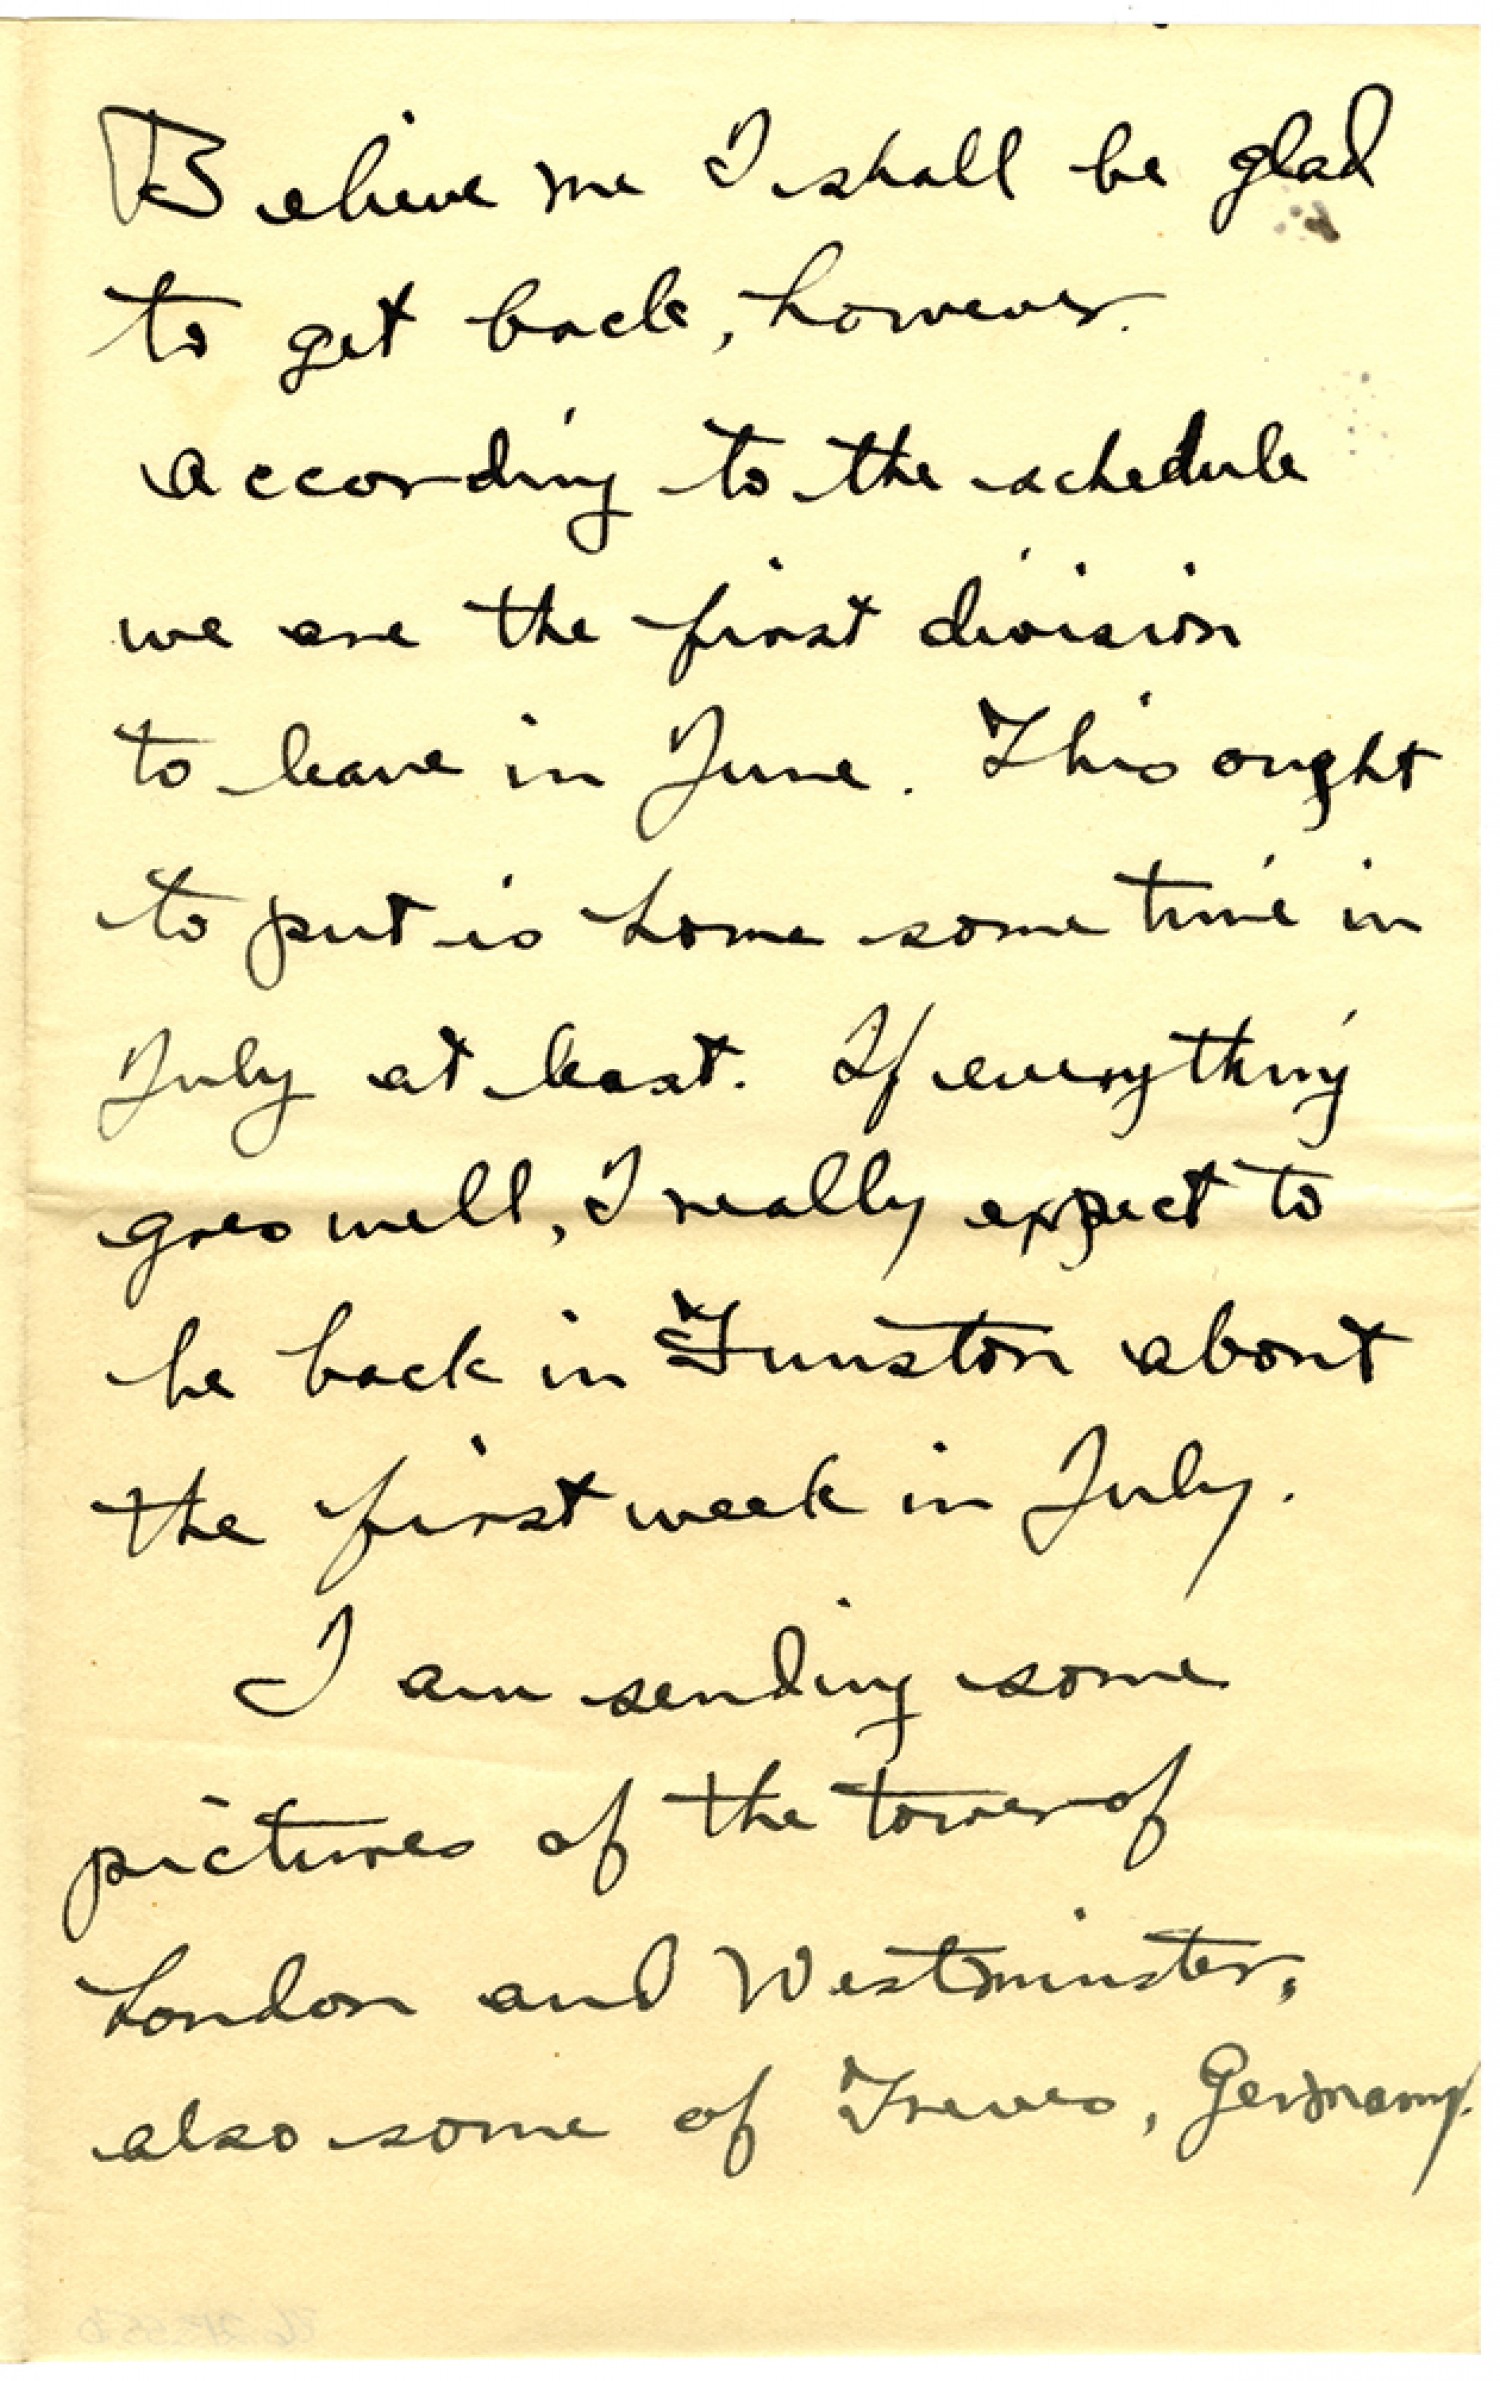 Believe me I shall be glad
to get back, however.
according to the schedule
we are the first division
to leave in June. This ought
to put is home some time in
July at least. If everything
goes well, I really expect to
be back in Funston about
the first week in July.
I am sending some
pictures of the tower of
London and Westminster,
also some of Treves, Germany.